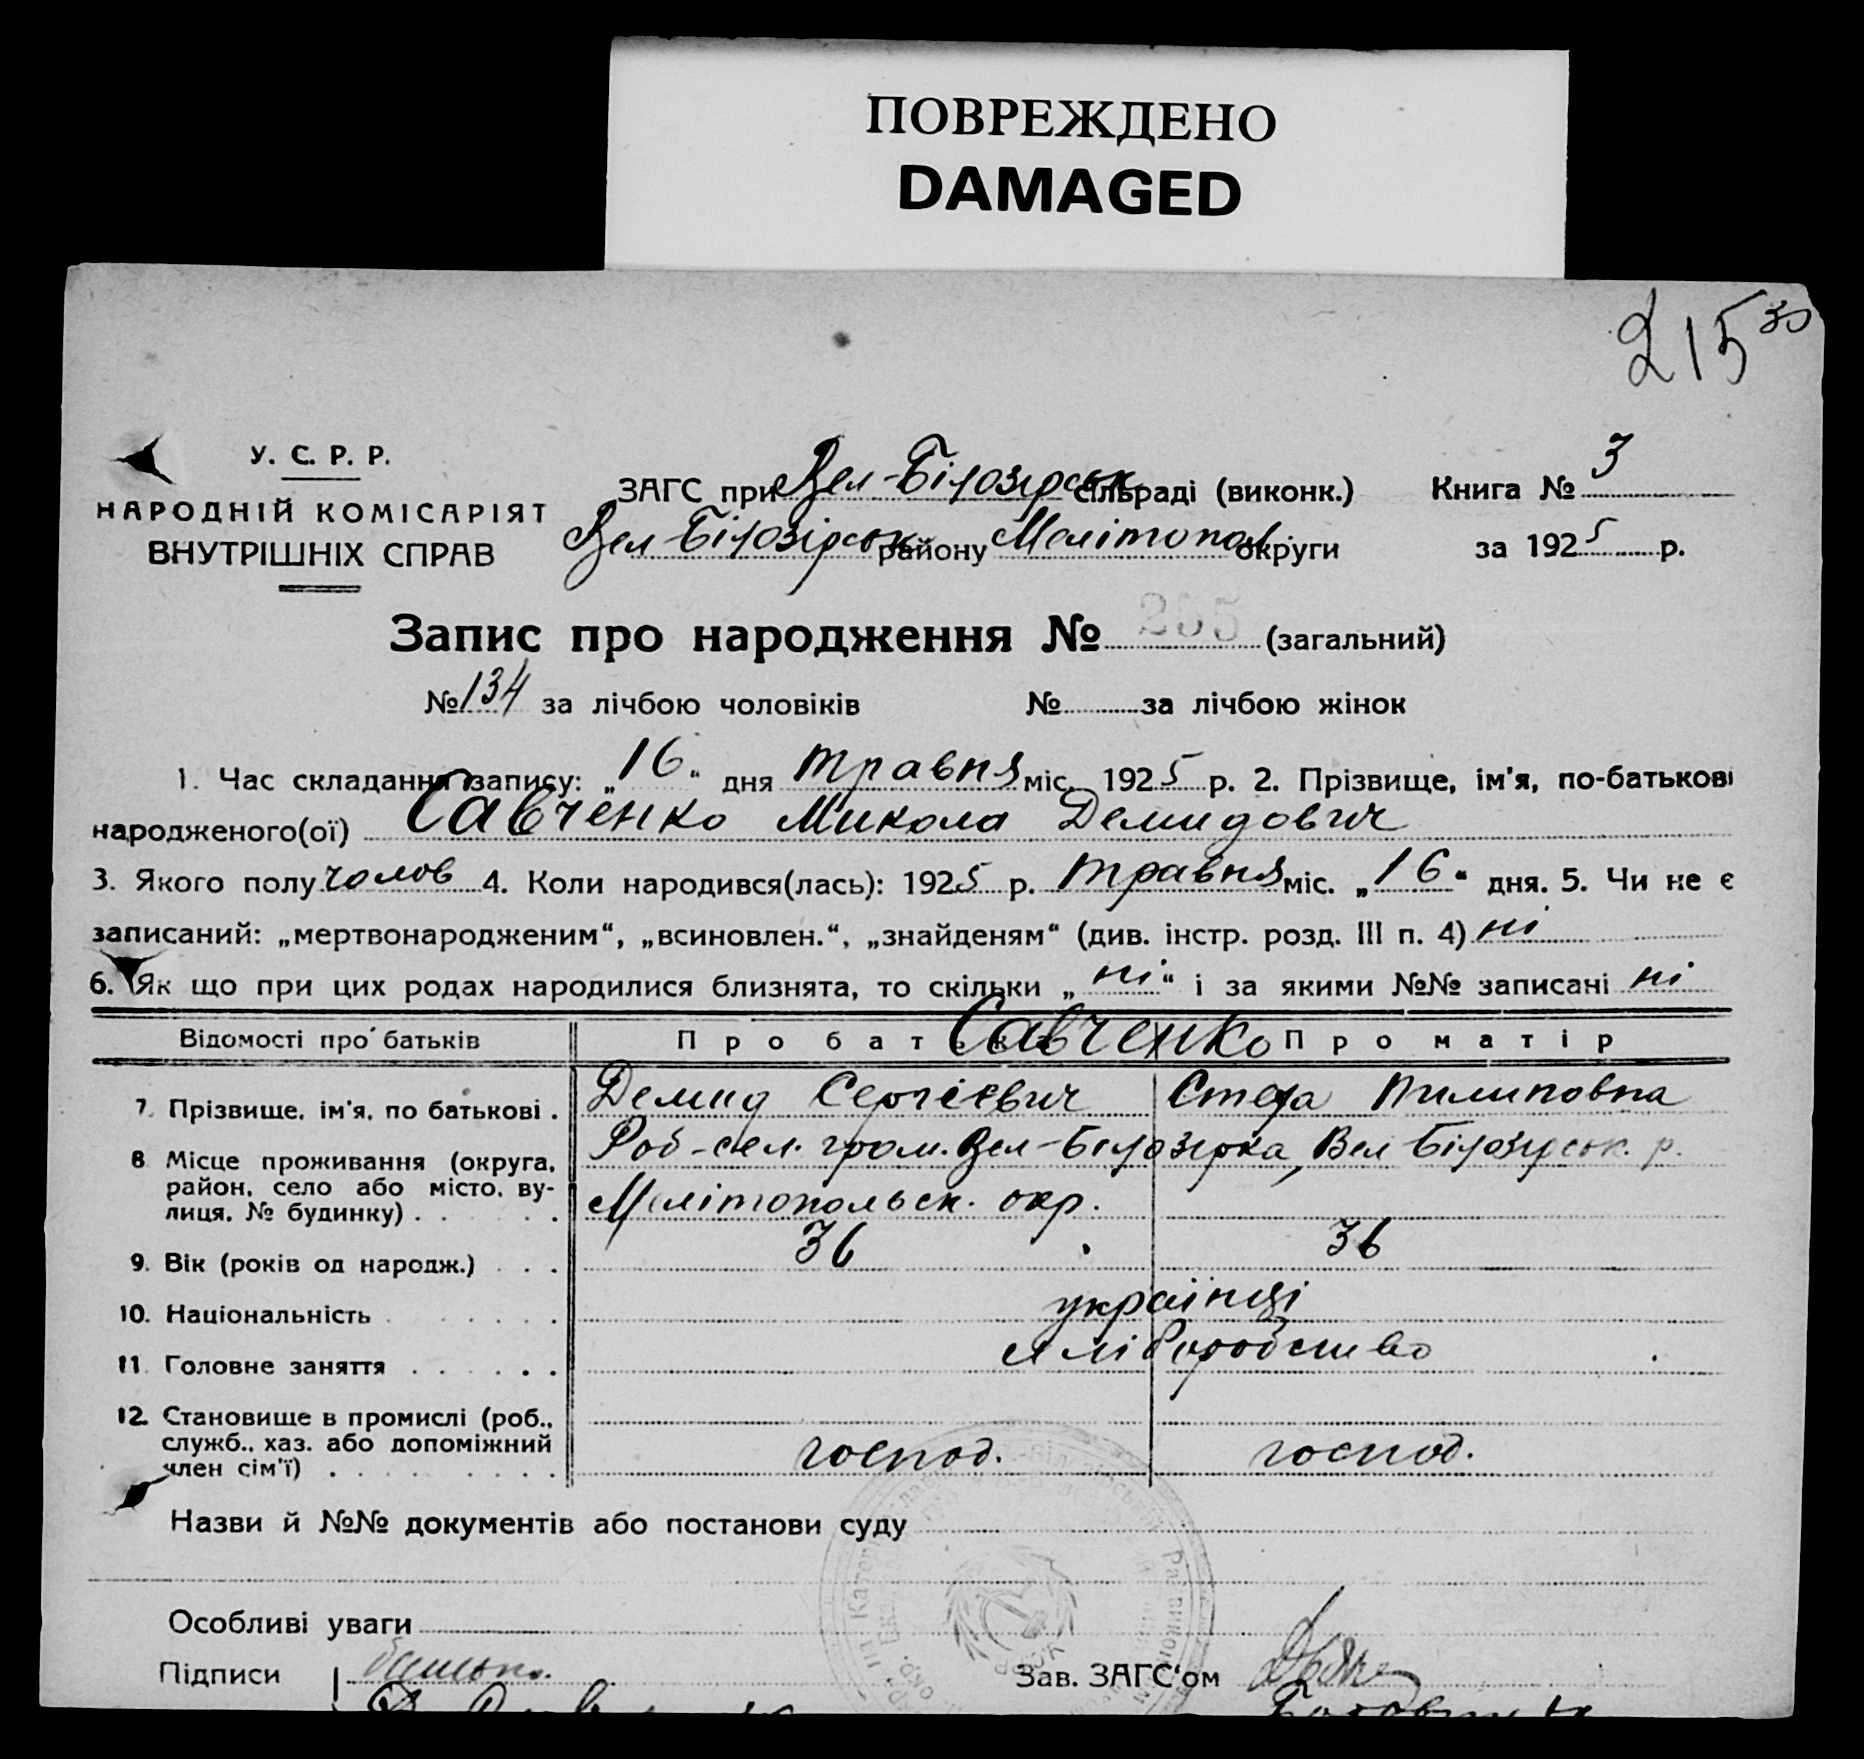 ПОВРЕЖДЕНО
DAMAGED
215 30
У. С. Р. Р.
НАРОДНІЙ КОМІСАРІЯТ
ВНУТРІШНІХ СПРАВ
ЗАГС при Вел-Білозірськ сільраді (виконк.) Книга № 3
Вел Білозірськ району Мелітопол. округи за 1925 р.
Запис про народження № 255 (загальний)
№ 134 за лічбою чоловіків № за лічбою жінок
1. Час складання запису: „16“ дня травня міс. 1925 р. 2. Прізвище, ім'я, по-батькові
народженого(ої) Савченко Микола Демидович
3. Якого полу чолов 4. Коли народився(лась): 1925 р. травня міс. „16“ дня. 5. Чи не є
записаний: „мертвонародженим“, „всиновлен.“, „знайденям“ (див. інстр. розд. III п. 4) ні
6. Як що при цих родах народилися близнята, то скільки „ні“ і за якими №№ записані ні
Відомості про батьків Про батька Савченко Про матір
7. Прізвище, ім'я, по батькові . Демид Сергієвич Стефа Пилиповна
8 Місце проживання (округа, район, село або місто, вулиця, № будинку) . Роб-сел. гром. Вел-Білозірка, Вел Білозірськ. р.
Мелітопольськ. окр.
9. Вік (років од народж.) . . . 36 36
10. Національність українці
11. Головне заняття хліборобство
12. Становище в промислі (роб., служб., хаз. або допоміжний член сім'ї) господ. господ.
Назви й №№ документів або постанови суду
Особливі уваги
Підписи батько. Зав. ЗАГС'ом